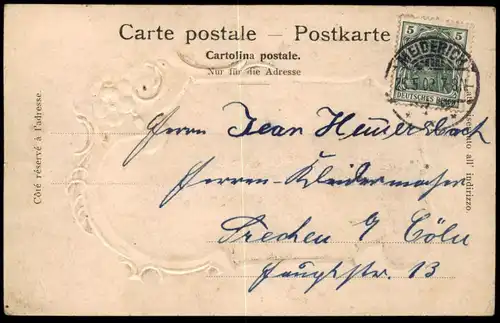 Carte postale – Postkarte
Cartolina postale.
Nur für die Adresse
5 5
MEIDERICH
DEUTSCHES REICH
Côté réservé à l'adresse.
Lato riservato all' indirizzo
Herrn Jean
Herren-Kleidermacher
Frechen b/ Cöln
Hauptstr. 13